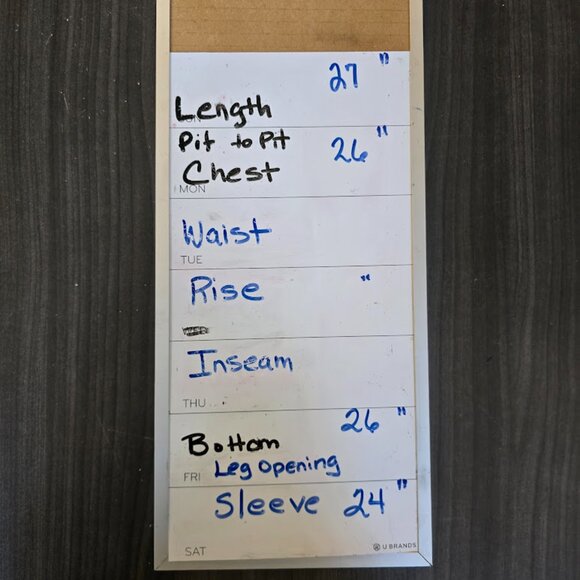 27 "
Length
Pit to Pit 26 "
Chest
MON
Waist
TUE
Rise "
Inseam
THU
26 "
Bottom
FRI Leg Opening
Sleeve 24 "
SAT U BRANDS